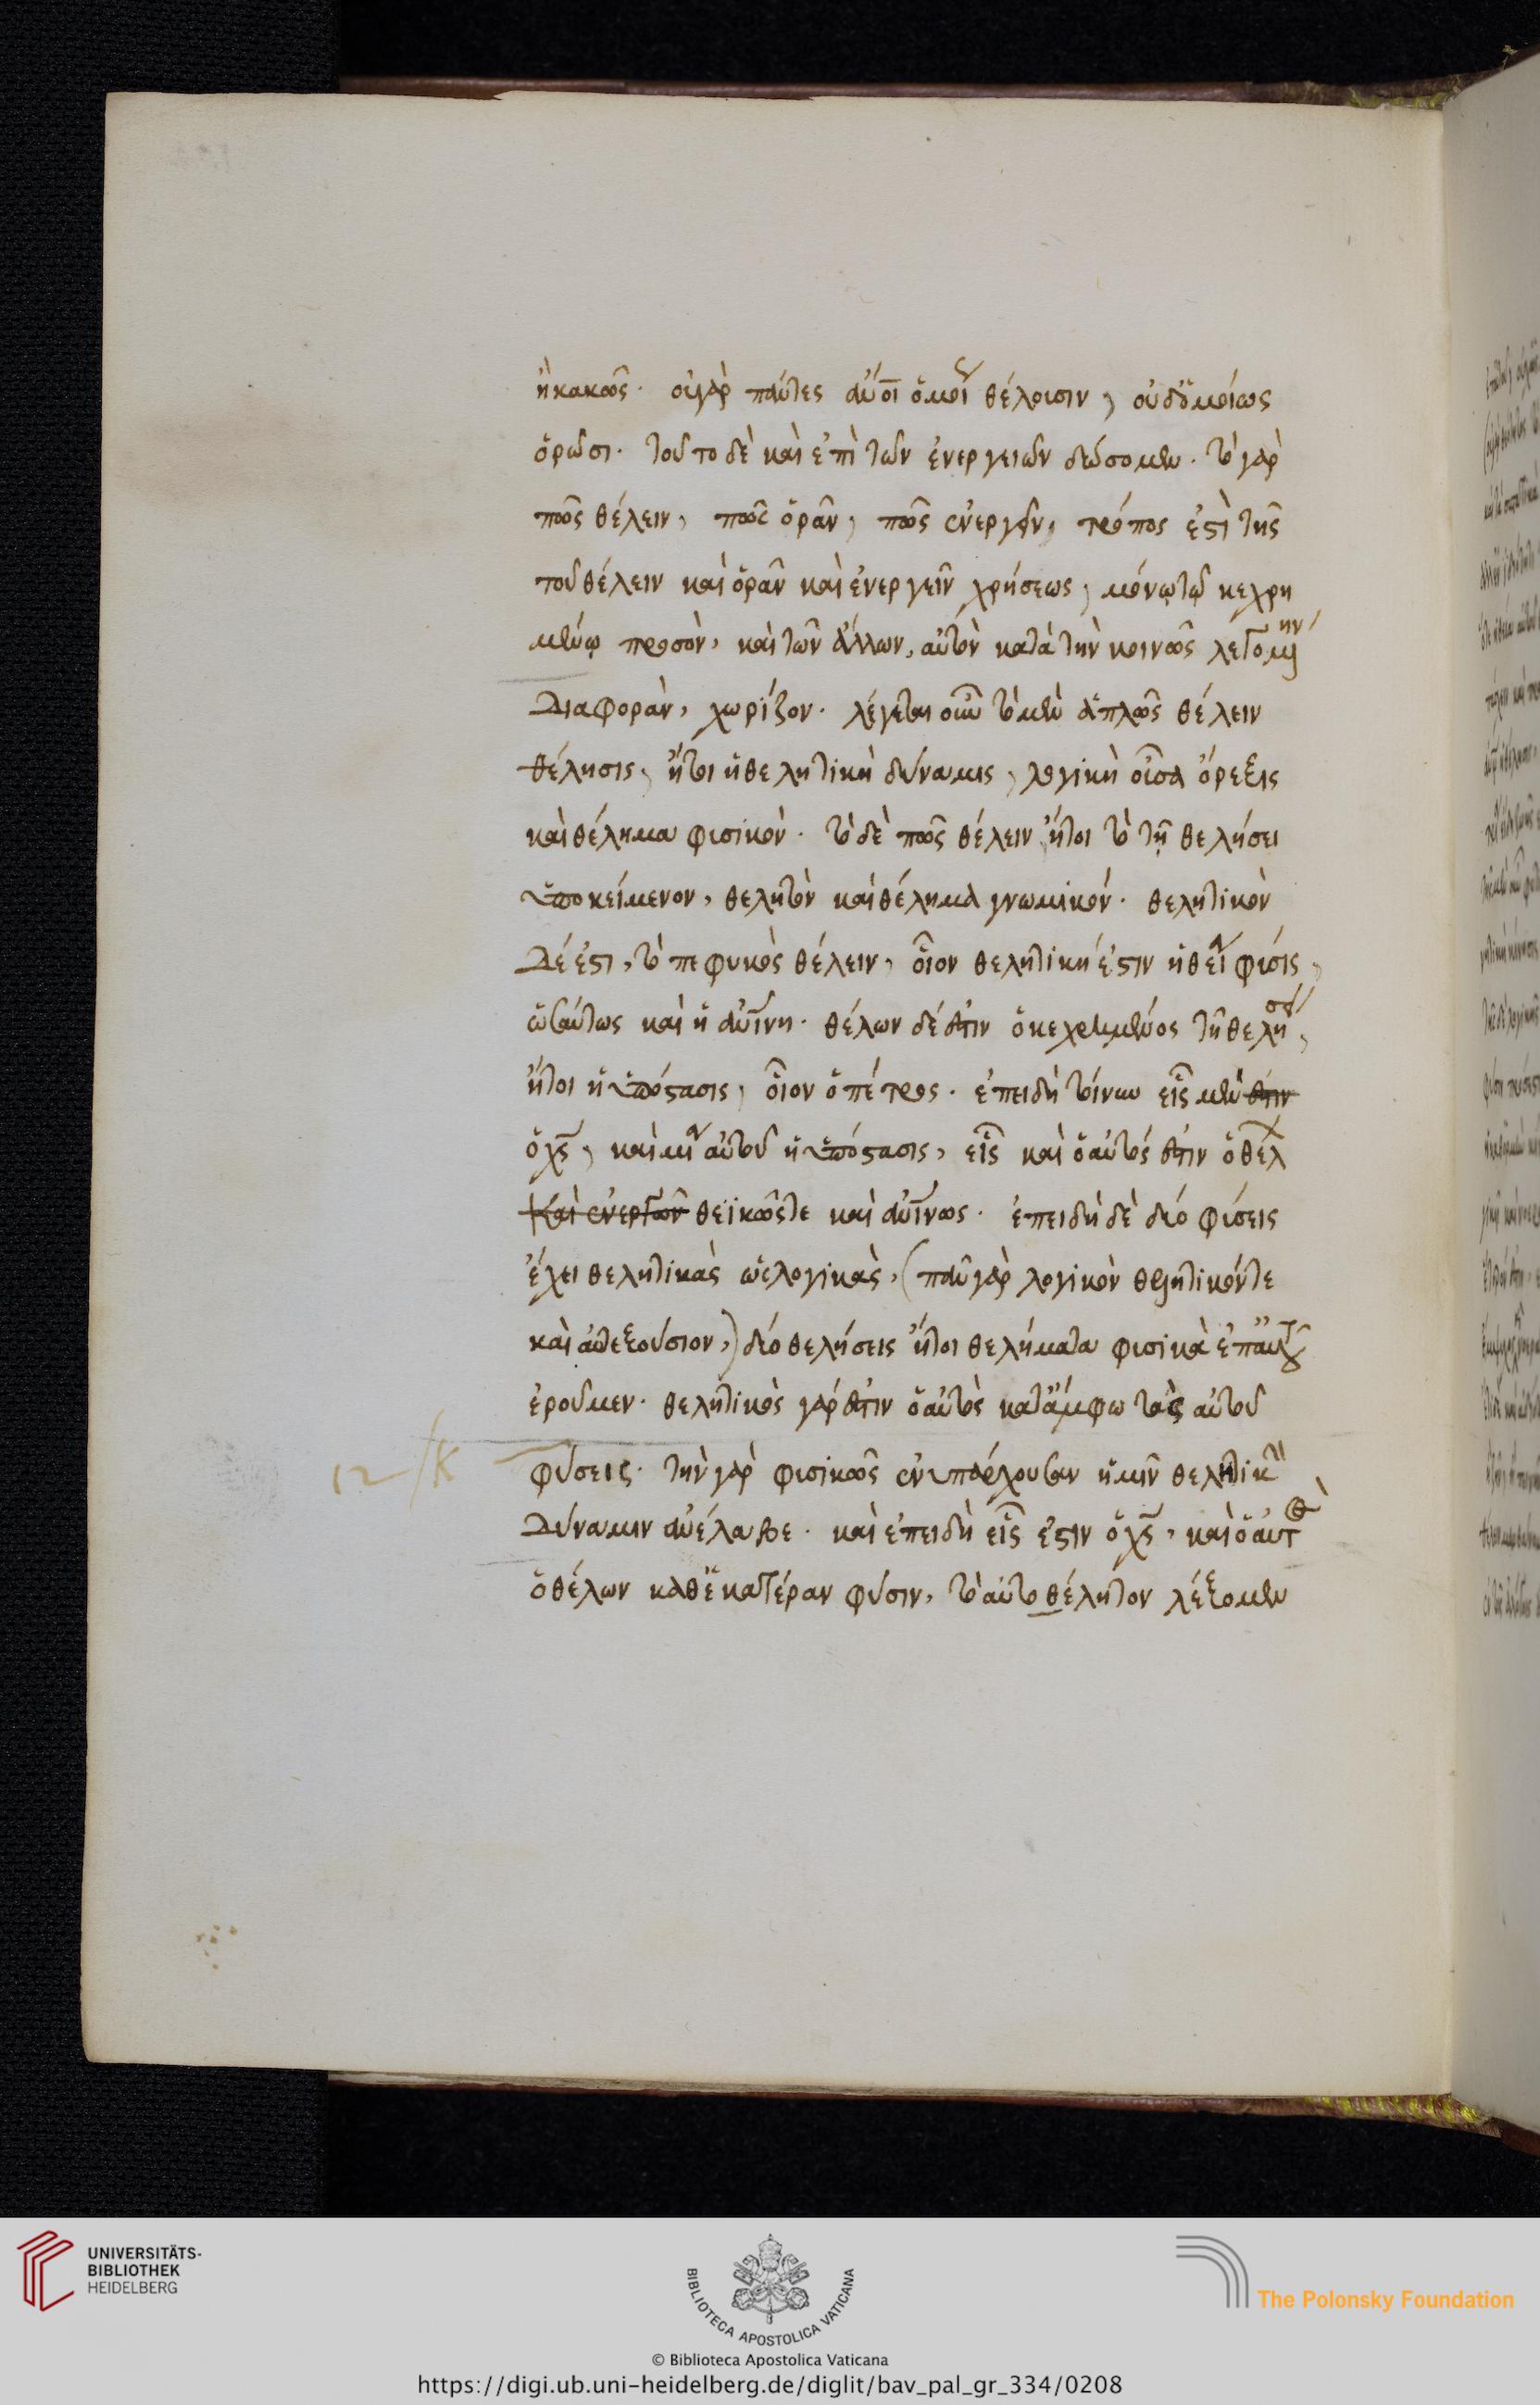 ἢ κακῶς. οὐ γὰρ πάντες ἄνοι ὁμοί θέλουσιν, οὐδ' ὁμοίως
ὁρῶσι. τοῦτο δὲ καὶ ἐπὶ τῶν ἐνεργειῶν δώσομεν. τὸ γὰρ
πῶς θέλειν, πῶς ὁρᾶν, πῶς ἐνεργεῖν, τρόπος ἐστὶ τῆς
τοῦ θέλειν καὶ ὁρᾶν καὶ ἐνεργεῖν χρήσεως, μόνῳ τῷ κεχρη
μένῳ προσὸν, καὶ τῶν ἄλλων, αὐτὸν κατὰ τὴν κοινῶς λεγομένην
διαφορὰν, χωρίζον. λέγεται οὖν τὸ μὲν ἁπλῶς θέλειν
θέλησις, ἤτοι ἡ θελητικὴ δύναμις, λογικὴ οὖσα ὄρεξις
καὶ θέλημα φυσικὸν. τὸ δὲ πῶς θέλειν ἤτοι τὸ τῇ θελήσει
ὑποκείμενον, θελητὸν καὶ θέλημα γνωμικόν. θελητικὸν
δέ ἐστι, τὸ πεφυκὸς θέλειν, οἷον θελητική ἐστιν ἡ θεία φύσις,
ὡσαύτως καὶ ἡ ἀνίνη. θέλων δέ ἐστιν ὁ κεχρημένος τῇ θελήσει,
ἤτοι ἡ ὑπόστασις, οἷον ὁ πέτρος. ἐπειδὴ τοίνυν εἷς μέν ἐστιν
ὁ χς, καὶ μία αὐτοῦ ἡ ὑπόστασις, εἷς καὶ ὁ αὐτός ἐστιν ὁ θέλ
καὶ ἐνεργῶν θεϊκῶς τε καὶ ἀνίνως. ἐπειδὴ δὲ δύο φύσεις
ἔχει θελητικὰς ὡς λογικὰς, (πᾶν γὰρ λογικὸν θελητικόν τε
καὶ αὐτεξούσιον,) δύο θελήσεις ἤτοι θελήματα φυσικὰ ἐπ' αὐτοῦ
ἐροῦμεν. θελητικὸς γάρ ἐστιν ὁ αὐτὸς κατ' ἄμφω τὰς αὐτοῦ
12 /K φύσεις. τὴν γὰρ φυσικῶς ἐνυπάρχουσαν ἡμῖν θελητικὴν
δύναμιν ἀνέλαβε. καὶ ἐπειδὴ εἷς ἐστιν ὁ χς, καὶ ὁ αὐτὸς
ὁ θέλων καθ' ἑκατέραν φύσιν, τὸ αὐτὸ θέλητον λέξομεν
UNIVERSITÄTS-
BIBLIOTHEK
HEIDELBERG
BIBLIOTECA APOSTOLICA VATICANA
The Polonsky Foundation
© Biblioteca Apostolica Vaticana
https://digi.ub.uni-heidelberg.de/diglit/bav_pal_gr_334/0208